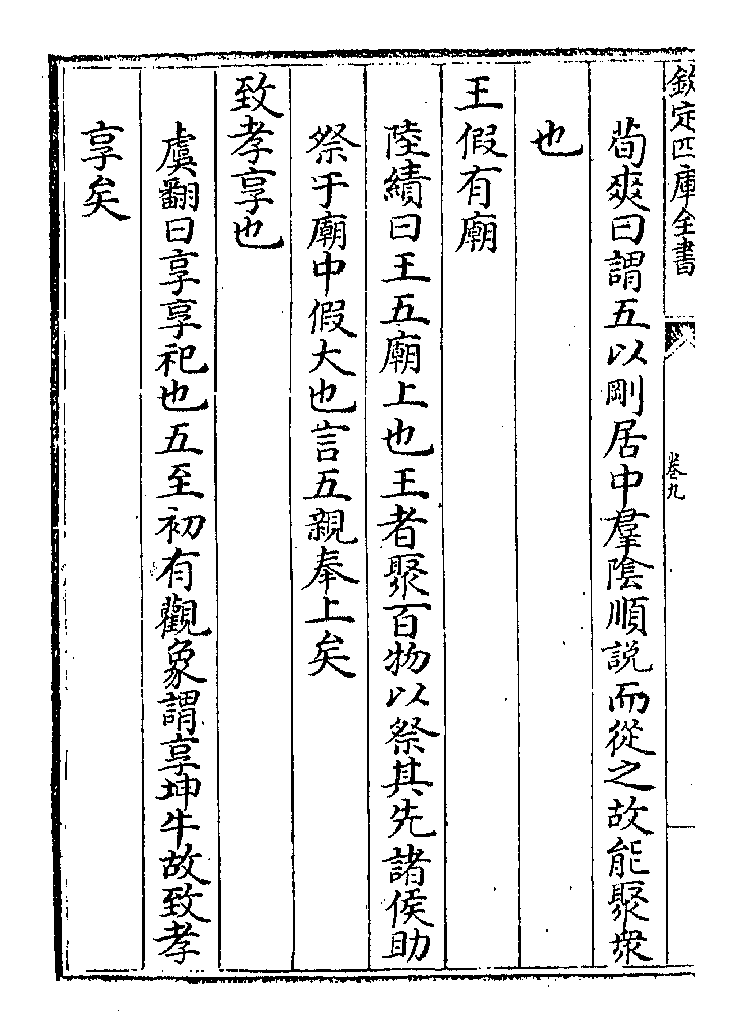 欽定四庫全書
卷九
荀爽曰謂五以剛居中羣陰順說而從之故能聚衆
也
王假有廟
陸績曰王五廟上也王者聚百物以祭其先諸侯助
祭于廟中假大也言五親奉上矣
致孝享也
虞翻曰享享祀也五至初有觀象謂享坤牛故致孝
享矣